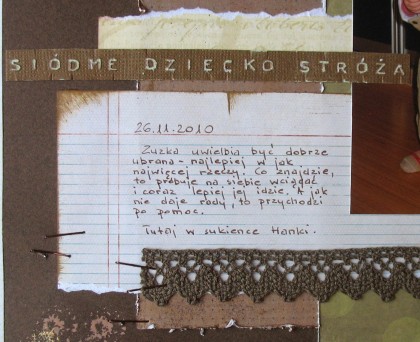 SIÓDME DZIECKO STRÓŻA
26.11.2010
Zuzka uwielbia być dobrze
ubrana - najlepiej w jak
najwięcej rzeczy. Co znajdzie,
to próbuje na siebie wciągać
i coraz lepiej jej idzie. A jak
nie daje rady, to przychodzi
po pomoc.
Tutaj w sukience Hanki.